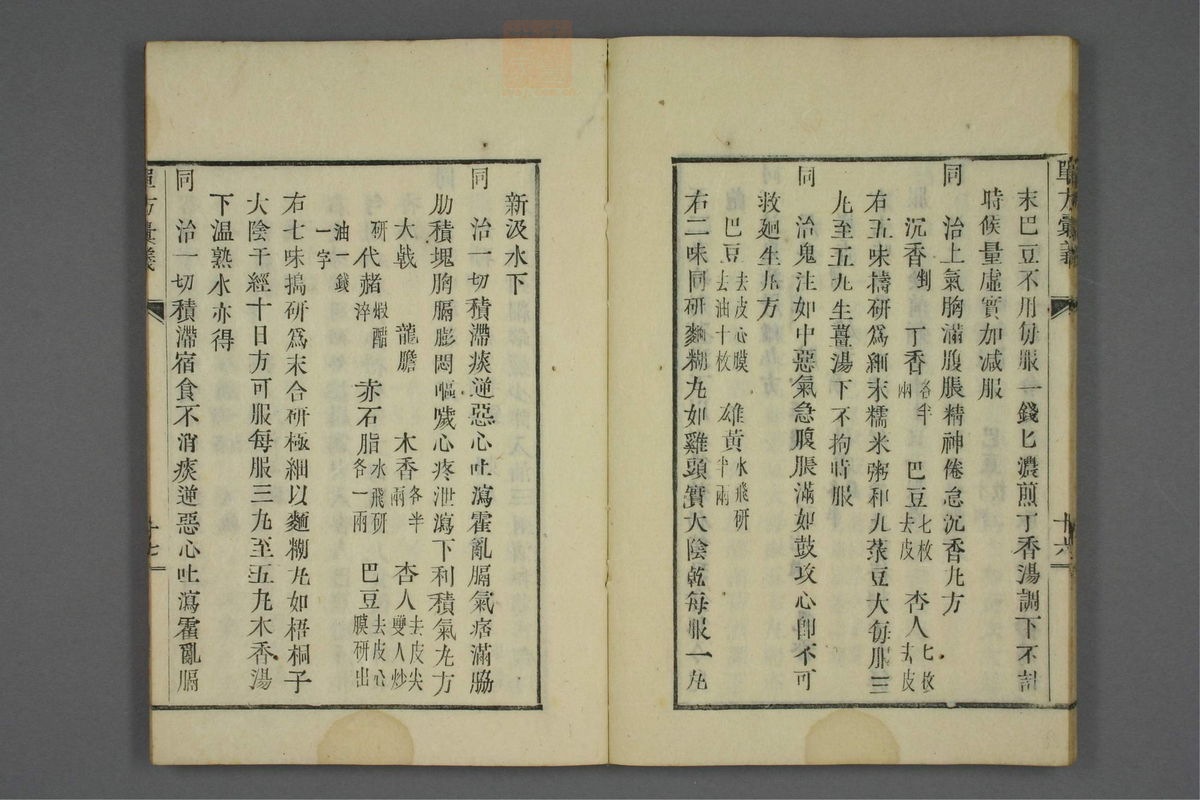 單方彙義
十六
末巴豆不用每服一錢匕濃煎丁香湯調下不計
時候量虛實加减服
同 治上氣胸滿腹脹精神倦怠沉香丸方
沉香剉 丁香各半兩 巴豆七枚去皮 杏人七枚去皮
右五味擣研爲細末糯米粥和丸菉豆大每服三
丸至五丸生薑湯下不拘時服
同 治鬼注如中惡氣急腹脹滿如鼓攻心卽不可
救廻生丸方
巴豆去皮心膜去油十枚 雄黃水飛研半兩
右二味同研麵糊丸如雞頭實大陰乾每服一丸
新汲水下
同 治一切積滯痰逆惡心吐瀉霍亂膈氣痞滿脇
肋積塊胸膈膨悶嘔噦心疼泄瀉下利積氣丸方
大戟 龍膽 木香各半兩 杏人去皮尖雙人炒
研 代赭煆醋淬 赤石脂水飛研各一兩 巴豆去皮心膜研出
油一錢一字
右七味搗研爲末合研極細以麵糊丸如梧桐子
大陰干經十日方可服每服三丸至五丸木香湯
下溫熟水亦得
同 治一切積滯宿食不消痰逆惡心吐瀉霍亂膈
單方彙義
十七